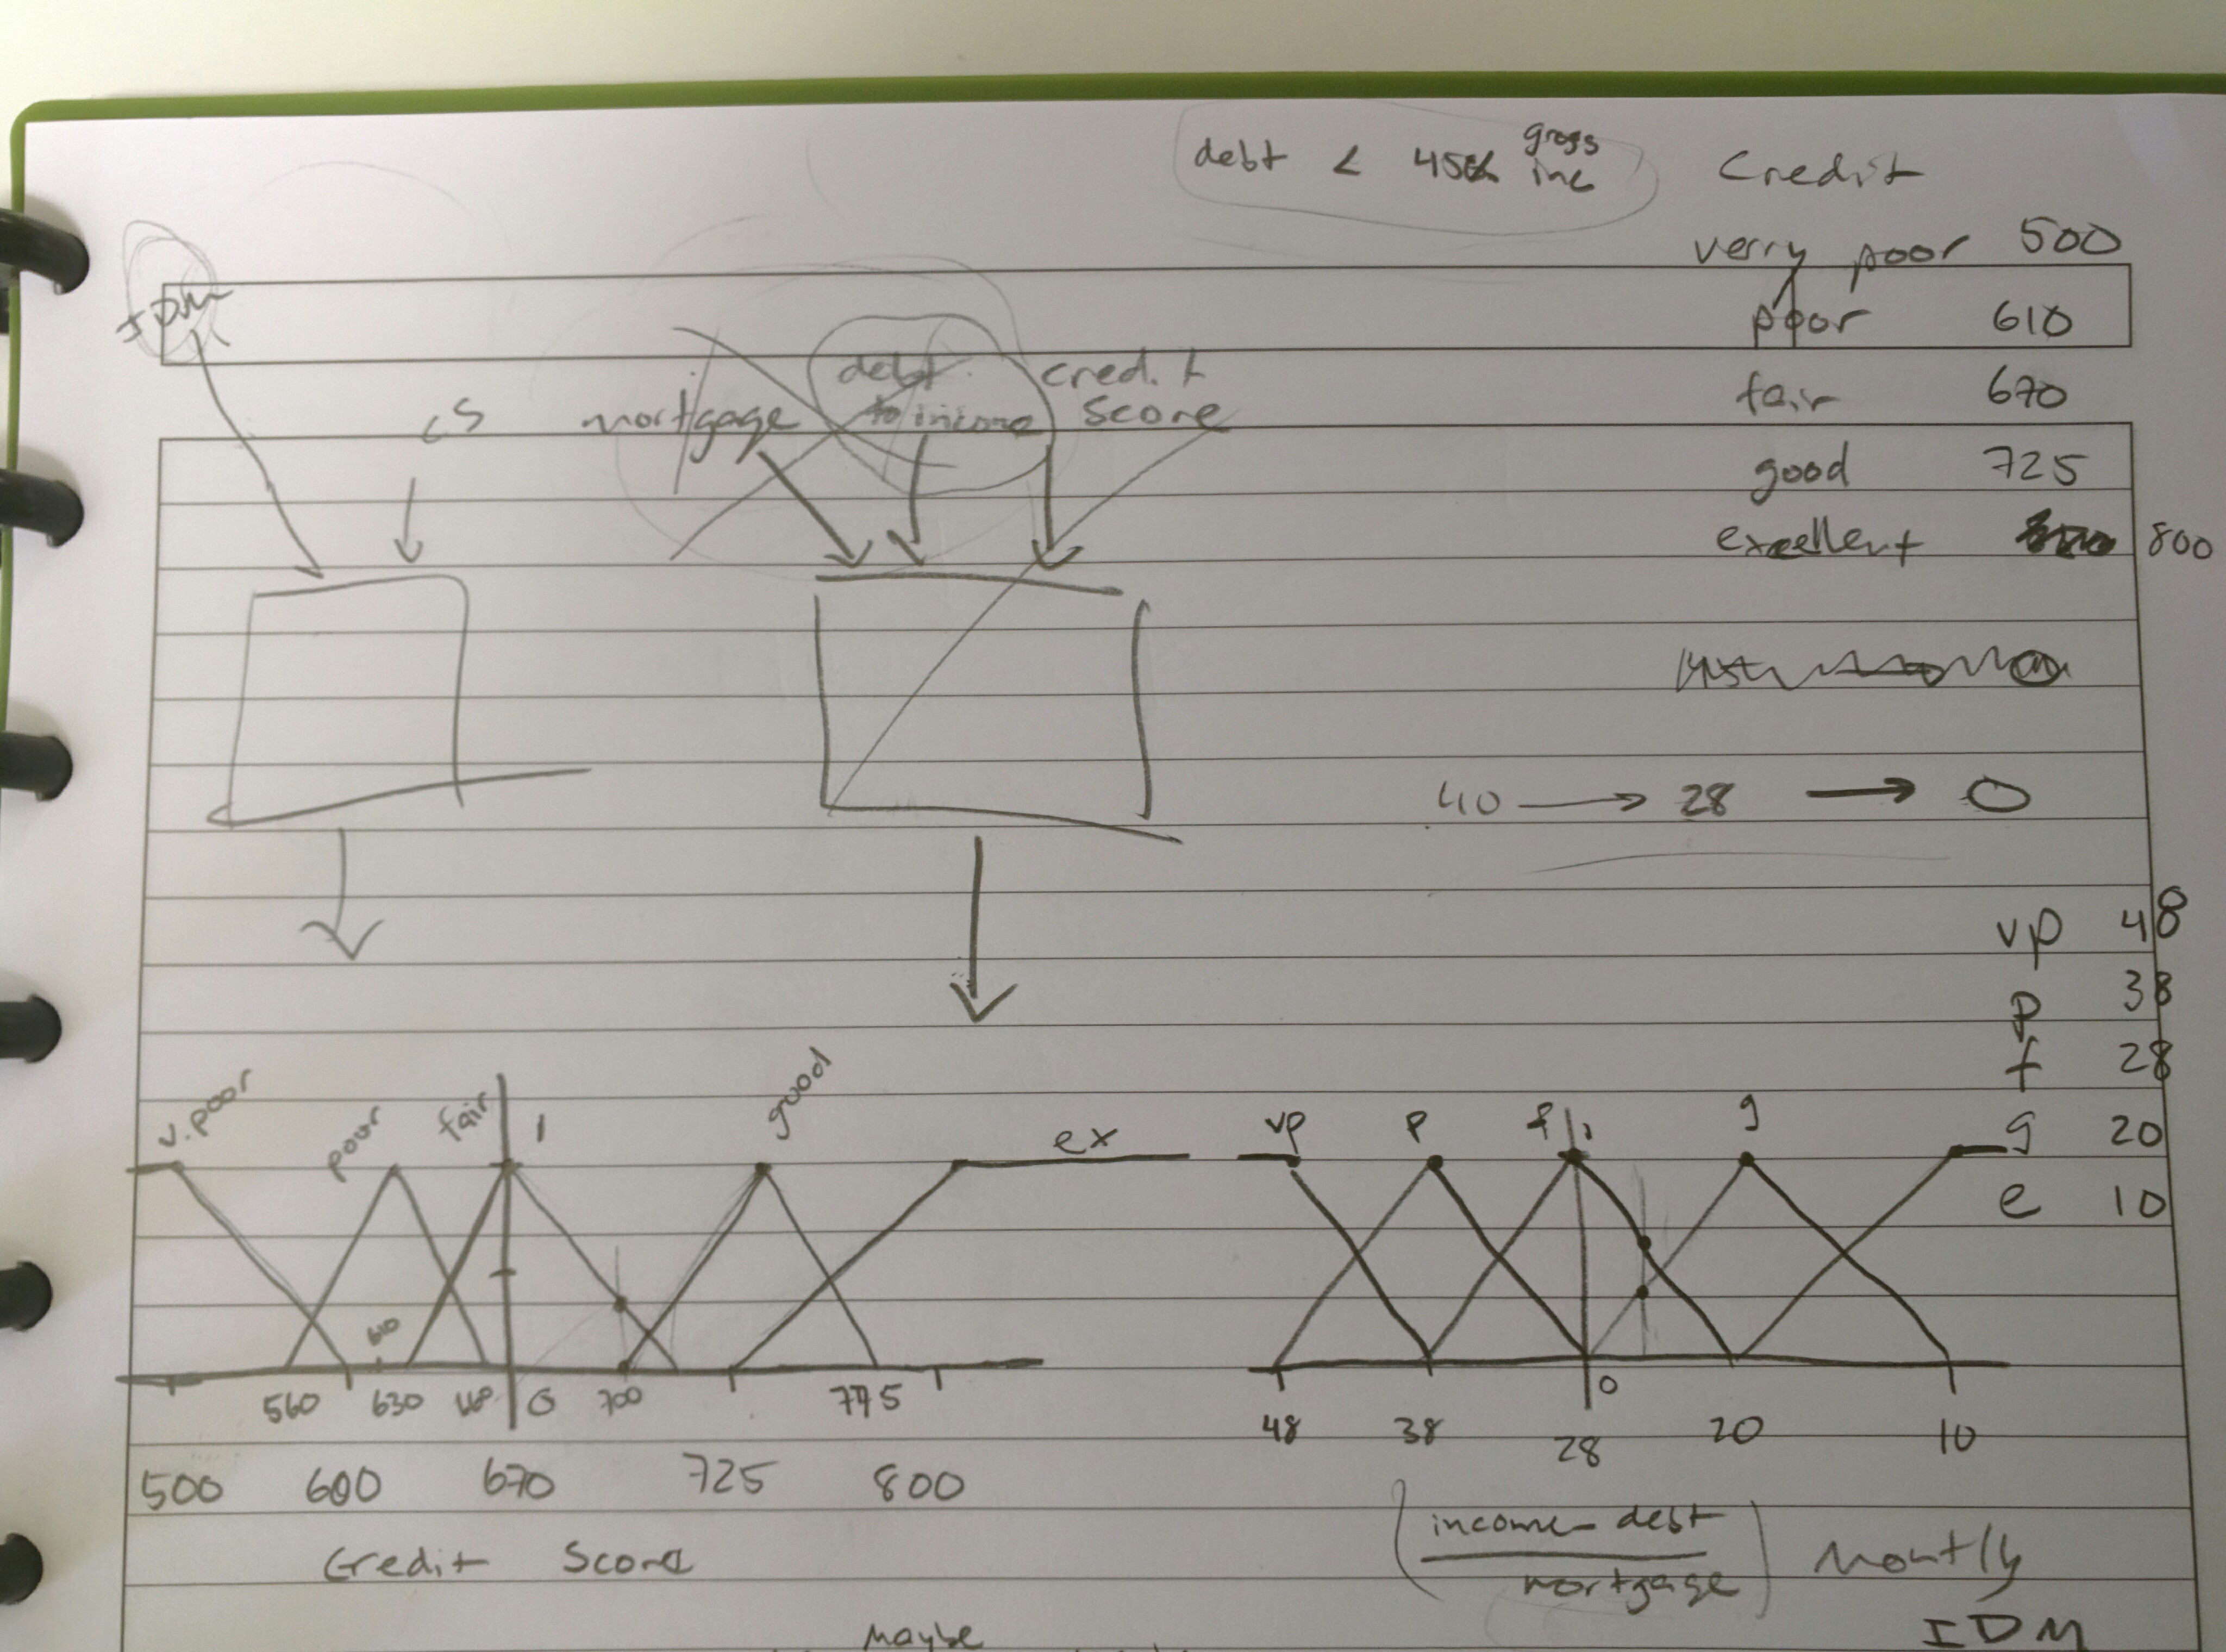 debt < 45% gross inc
Credit
verry poor 500
poor 610
fair 670
good 725
excellent 800
IDM
cs
mortgage
debt to income
credit score
40 → 28 → 0
vp 48
p 38
f 28
g 20
e 10
v.poor poor fair 1 good ex
610
560 630 0 700 775
500 600 670 725 800
Credit Score
vp p f 1 g
0
48 38 28 20 10
income - debt
mortgage
Montly
IDM
Maybe